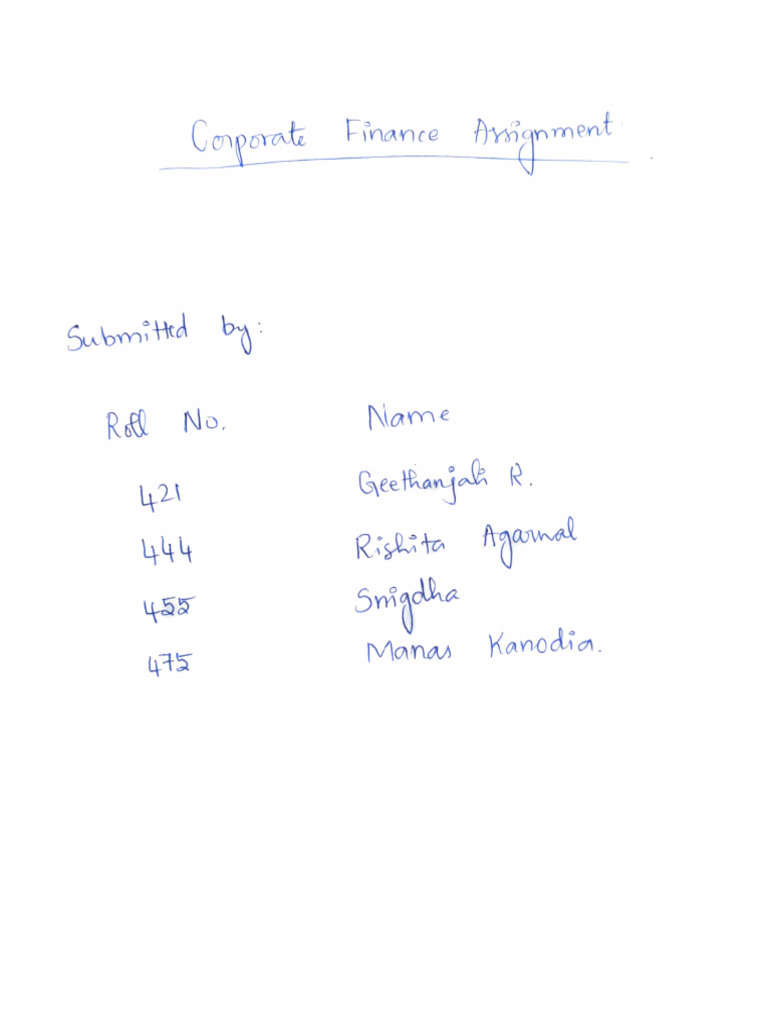 Corporate Finance Assignment
Submitted by:
Roll No. Name
421 Geethanjali R.
444 Rishita Agarwal
455 Snigdha
475 Manas Kanodia.